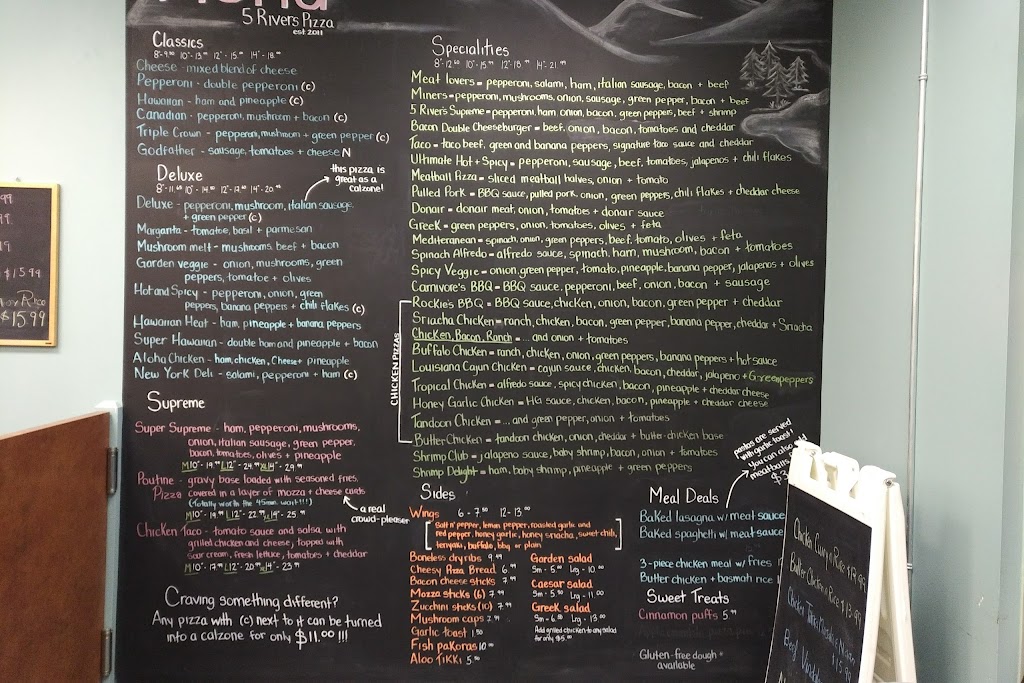 Menu
5 Rivers Pizza
est. 2011
Classics
8"-9.00 10"-13.00 12"-15.00 14"-18.00
Cheese - mixed blend of cheese
Pepperoni - double pepperoni (c)
Hawaiian - ham and pineapple (c)
Canadian - pepperoni, mushroom + bacon (c)
Triple Crown - pepperoni, mushroom + green pepper (c)
Godfather - sausage, tomatoes + cheese N
Deluxe
this pizza is great as a calzone!
Deluxe - pepperoni, mushroom, italian sausage,
+ green pepper (c)
Margarita - tomatoe, basil + parmesan
Mushroom melt - mushrooms, beef + bacon
Garden veggie - onion, mushrooms, green
peppers, tomatoe + olives
Hot and Spicy - pepperoni, onion, green
peppers, banana peppers + chili flakes (c)
Hawaiian Heat - ham, pineapple + banana peppers
Super Hawaiian - double ham and pineapple + bacon
Aloha Chicken - ham, chicken, cheese + pineapple
New York Deli - salami, pepperoni + ham (c)
Supreme
Super Supreme - ham, pepperoni, mushrooms,
onion, italian sausage, green pepper,
bacon, tomatoes, olives + pineapple
M10"-19.99 L12"-24.99 XL14"-29.99
Poutine - gravy base loaded with seasoned fries,
Pizza covered in a layer of mozza + cheese curds
(Totally worth the 45min. wait!!!)
M10"-19.99 L12"-22.99 XL14"-25.99
a real
crowd-pleaser
Chicken Taco - tomato sauce and salsa with
grilled chicken and cheese, topped with
sour cream, fresh lettuce, tomatoes + cheddar
M10"-17.99 L12"-20.99 XL14"-23.99
Craving something different?
Any pizza with (c) next to it can be turned
into a calzone for only $11.00 !!!
Specialities
Meat lovers = pepperoni, salami, ham, italian sausage, bacon + beef
Miners = pepperoni, mushrooms, onion, sausage, green pepper, bacon + beef
5 River's Supreme = pepperoni, ham, onion, bacon, green peppers, beef + shrimp
Bacon Double Cheeseburger = beef, onion, bacon, tomatoes and cheddar
Taco = taco beef, green and banana peppers, signature taco sauce and cheddar
Ultimate Hot + Spicy = pepperoni, sausage, beef, tomatoes, jalapenos + chili flakes
Meatball Pizza = sliced meatball halves, onion + tomato
Pulled Pork = BBQ sauce, pulled pork, onion, green peppers, chili flakes + cheddar cheese
Donair = donair meat, onion, tomatoes + donair sauce
Greek = green peppers, onion, tomatoes, olives + feta
Mediteranean = spinach, onion, green peppers, beef, tomato, olives + feta
Spinach Alfredo = alfredo sauce, spinach, ham, mushroom, bacon + tomatoes
Spicy Veggie = onion, green pepper, tomato, pineapple, banana pepper, jalapenos + olives
Carnivore's BBQ = BBQ sauce, pepperoni, beef, onion, bacon + sausage
CHICKEN PIZZAS
Rockie's BBQ = BBQ sauce, chicken, onion, bacon, green pepper + cheddar
Sriacha Chicken = ranch, chicken, bacon, green pepper, banana pepper, cheddar + Sriacha
Chicken, Bacon, Ranch = ... and onion + tomatoes
Buffalo Chicken = ranch, chicken, onion, green peppers, banana peppers + hot sauce
Louisiana Cajun Chicken = cajun sauce, chicken, bacon, cheddar, jalapeno + Green peppers
Tropical Chicken = alfredo sauce, spicy chicken, bacon, pineapple + cheddar cheese
Honey Garlic Chicken = HG sauce, chicken, bacon, pineapple + cheddar cheese
Tandoori Chicken = ... and green pepper, onion + tomatoes
Butter Chicken = tandoori chicken, onion, cheddar + butter chicken base
Shrimp Club = jalapeno sauce, baby shrimp, bacon, onion + tomatoes
Shrimp Delight = ham, baby shrimp, pineapple + green peppers
Sides
Wings 6 - 7.50 12 - 13.00
Salt n' pepper, lemon pepper, roasted garlic and
red pepper, honey garlic, honey sriacha, sweet chili,
teriyaki, buffalo, bbq or plain
Boneless dry ribs 9.99
Cheesy Pizza Bread 6.99
Bacon cheese sticks 7.99
Mozza sticks (6) 7.99
Zucchini sticks (10) 7.99
Mushroom caps 7.99
Garlic toast 1.50
Fish pakoras 10.00
Aloo Tikki 5.00
Garden salad
Sm - 5.00 Lrg - 10.00
Caesar salad
Sm - 5.50 Lrg - 11.00
Greek salad
Sm - 6.50 Lrg - 13.00
Add grilled chicken to any salad
for only $5.00
Meal Deals
pastas are served
with garlic toast!
You can also
meatballs
Baked lasagna w/ meat sauce
Baked spaghetti w/ meat sauce
3-piece chicken meal w/ fries
Butter chicken + basmati rice
Sweet Treats
Cinnamon puffs 5.99
Gluten-free dough
available
$15.99
$15.99
Chicken Curry + Rice $13.99
Butter Chicken + Rice $13.99